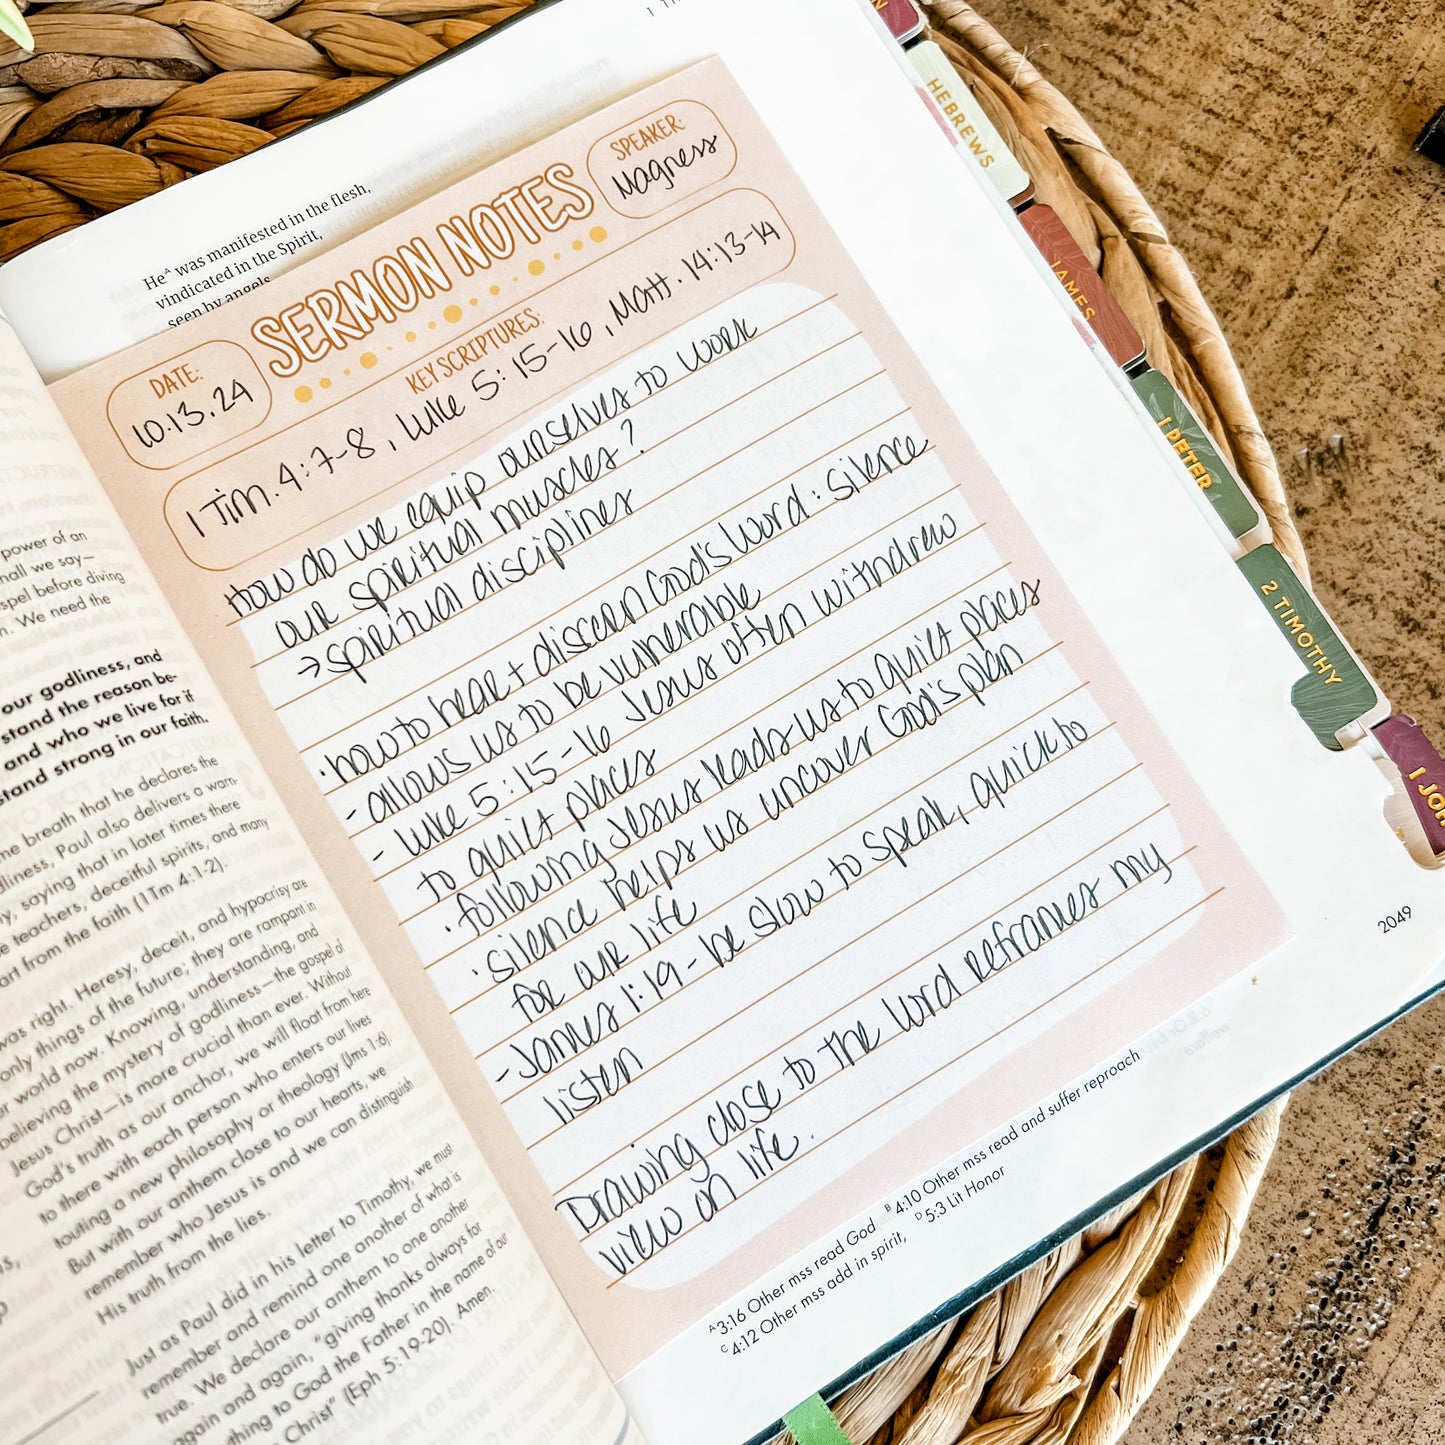 1 Ti
He^A was manifested in the flesh,
vindicated in the Spirit,
seen by angels
SERMON NOTES
DATE:
10.13.24
SPEAKER:
Magness
KEY SCRIPTURES:
1 Tim. 4:7-8, Luke 5:15-16, Matt. 14:13-14
How do we equip ourselves to work
our spiritual muscles?
→ spiritual disciplines
· how to hear + discern God's Word: silence
- allows us to be vulnerable
- Luke 5:15-16 Jesus often withdrew
to quiet places
· following Jesus leads us to quiet places
· silence helps us uncover God's plan
for our life
- James 1:19 - be slow to speak, quick to
listen
Drawing close to the Word reframes my
view on life.
^A 3:16 Other mss read God ^B 4:10 Other mss read and suffer reproach
^C 4:12 Other mss add in spirit, ^D 5:3 Lit Honor
2049
HEBREWS
JAMES
1 PETER
2 TIMOTHY
1 JOH
power of an
hall we say—
spel before diving
n. We need the
our godliness, and
stand the reason be-
and who we live for if
stand strong in our faith.
me breath that he declares the
dliness, Paul also delivers a warn-
y, saying that in later times there
e teachers, deceitful spirits, and many
art from the faith (1 Tm 4:1-2).
was right. Heresy, deceit, and hypocrisy are
only things of the future; they are rampant in
ur world now. Knowing, understanding, and
believing the mystery of godliness—the gospel of
Jesus Christ—is more crucial than ever. Without
God's truth as our anchor, we will float from here
to there with each person who enters our lives
touting a new philosophy or theology (Jms 1:6).
But with our anthem close to our hearts, we
remember who Jesus is and we can distinguish
His truth from the lies.
Just as Paul did in his letter to Timothy, we must
remember and remind one another of what is
true. We declare our anthem to one another
again and again, "giving thanks always for
thing to God the Father in the name of our
s Christ" (Eph 5:19-20). Amen.